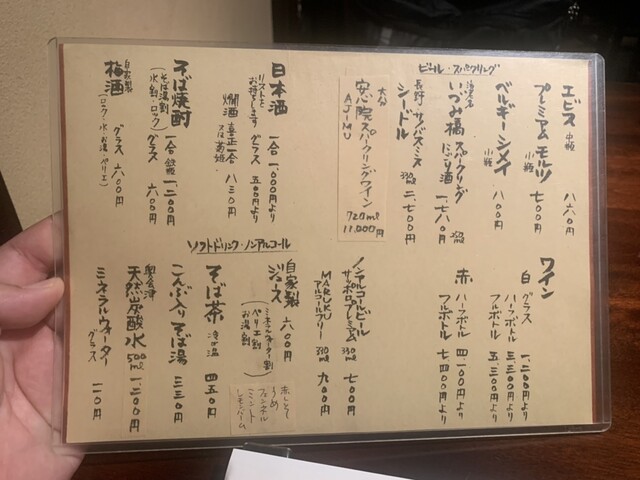 ビール・スパークリング
エビス 中瓶 八六〇円
プレミアムモルツ 小瓶 七〇〇円
ベルギーシメイ 小瓶 八〇〇円
いづみ橋スパークリング
にごり酒 一、七八〇円
長野・サンクゼール
シードル 330ml 二、七〇〇円
大分
安心院スパークリングワイン
AJIMU
720ml
11,000円
日本酒 一合 一、〇〇〇円より
リストを
お持ちします グラス 五〇〇円より
燗酒 喜正一合 八三〇円
そば焼酎 一合 一、二〇〇円
(そば湯割
水割・ロック) グラス 六〇〇円
自家製
梅酒 グラス 六〇〇円
(ロック・水・お湯・ペリエ)
ワイン
白 グラス 一、二〇〇円より
ハーフボトル 三、三〇〇円より
フルボトル 五、三〇〇円より
赤 ハーフボトル 四、一〇〇円より
フルボトル 七、四〇〇円より
ソフトドリンク・ノンアルコール
ノンアルコールビール
サッポロプレミアム 350ml 七〇〇円
MARUKU
アルコールフリー 330ml 九〇〇円
自家製 六〇〇円
ジュース
(ミネラルウォーター割
ペリエ割
お湯割)
赤しそ
うめ
ミント
そば茶 冷・温 四五〇円
こんぶ入りそば湯 三三〇円
奥会津
天然炭酸水 500ml 一、二〇〇円
ミネラルウォーター グラス 一一〇円